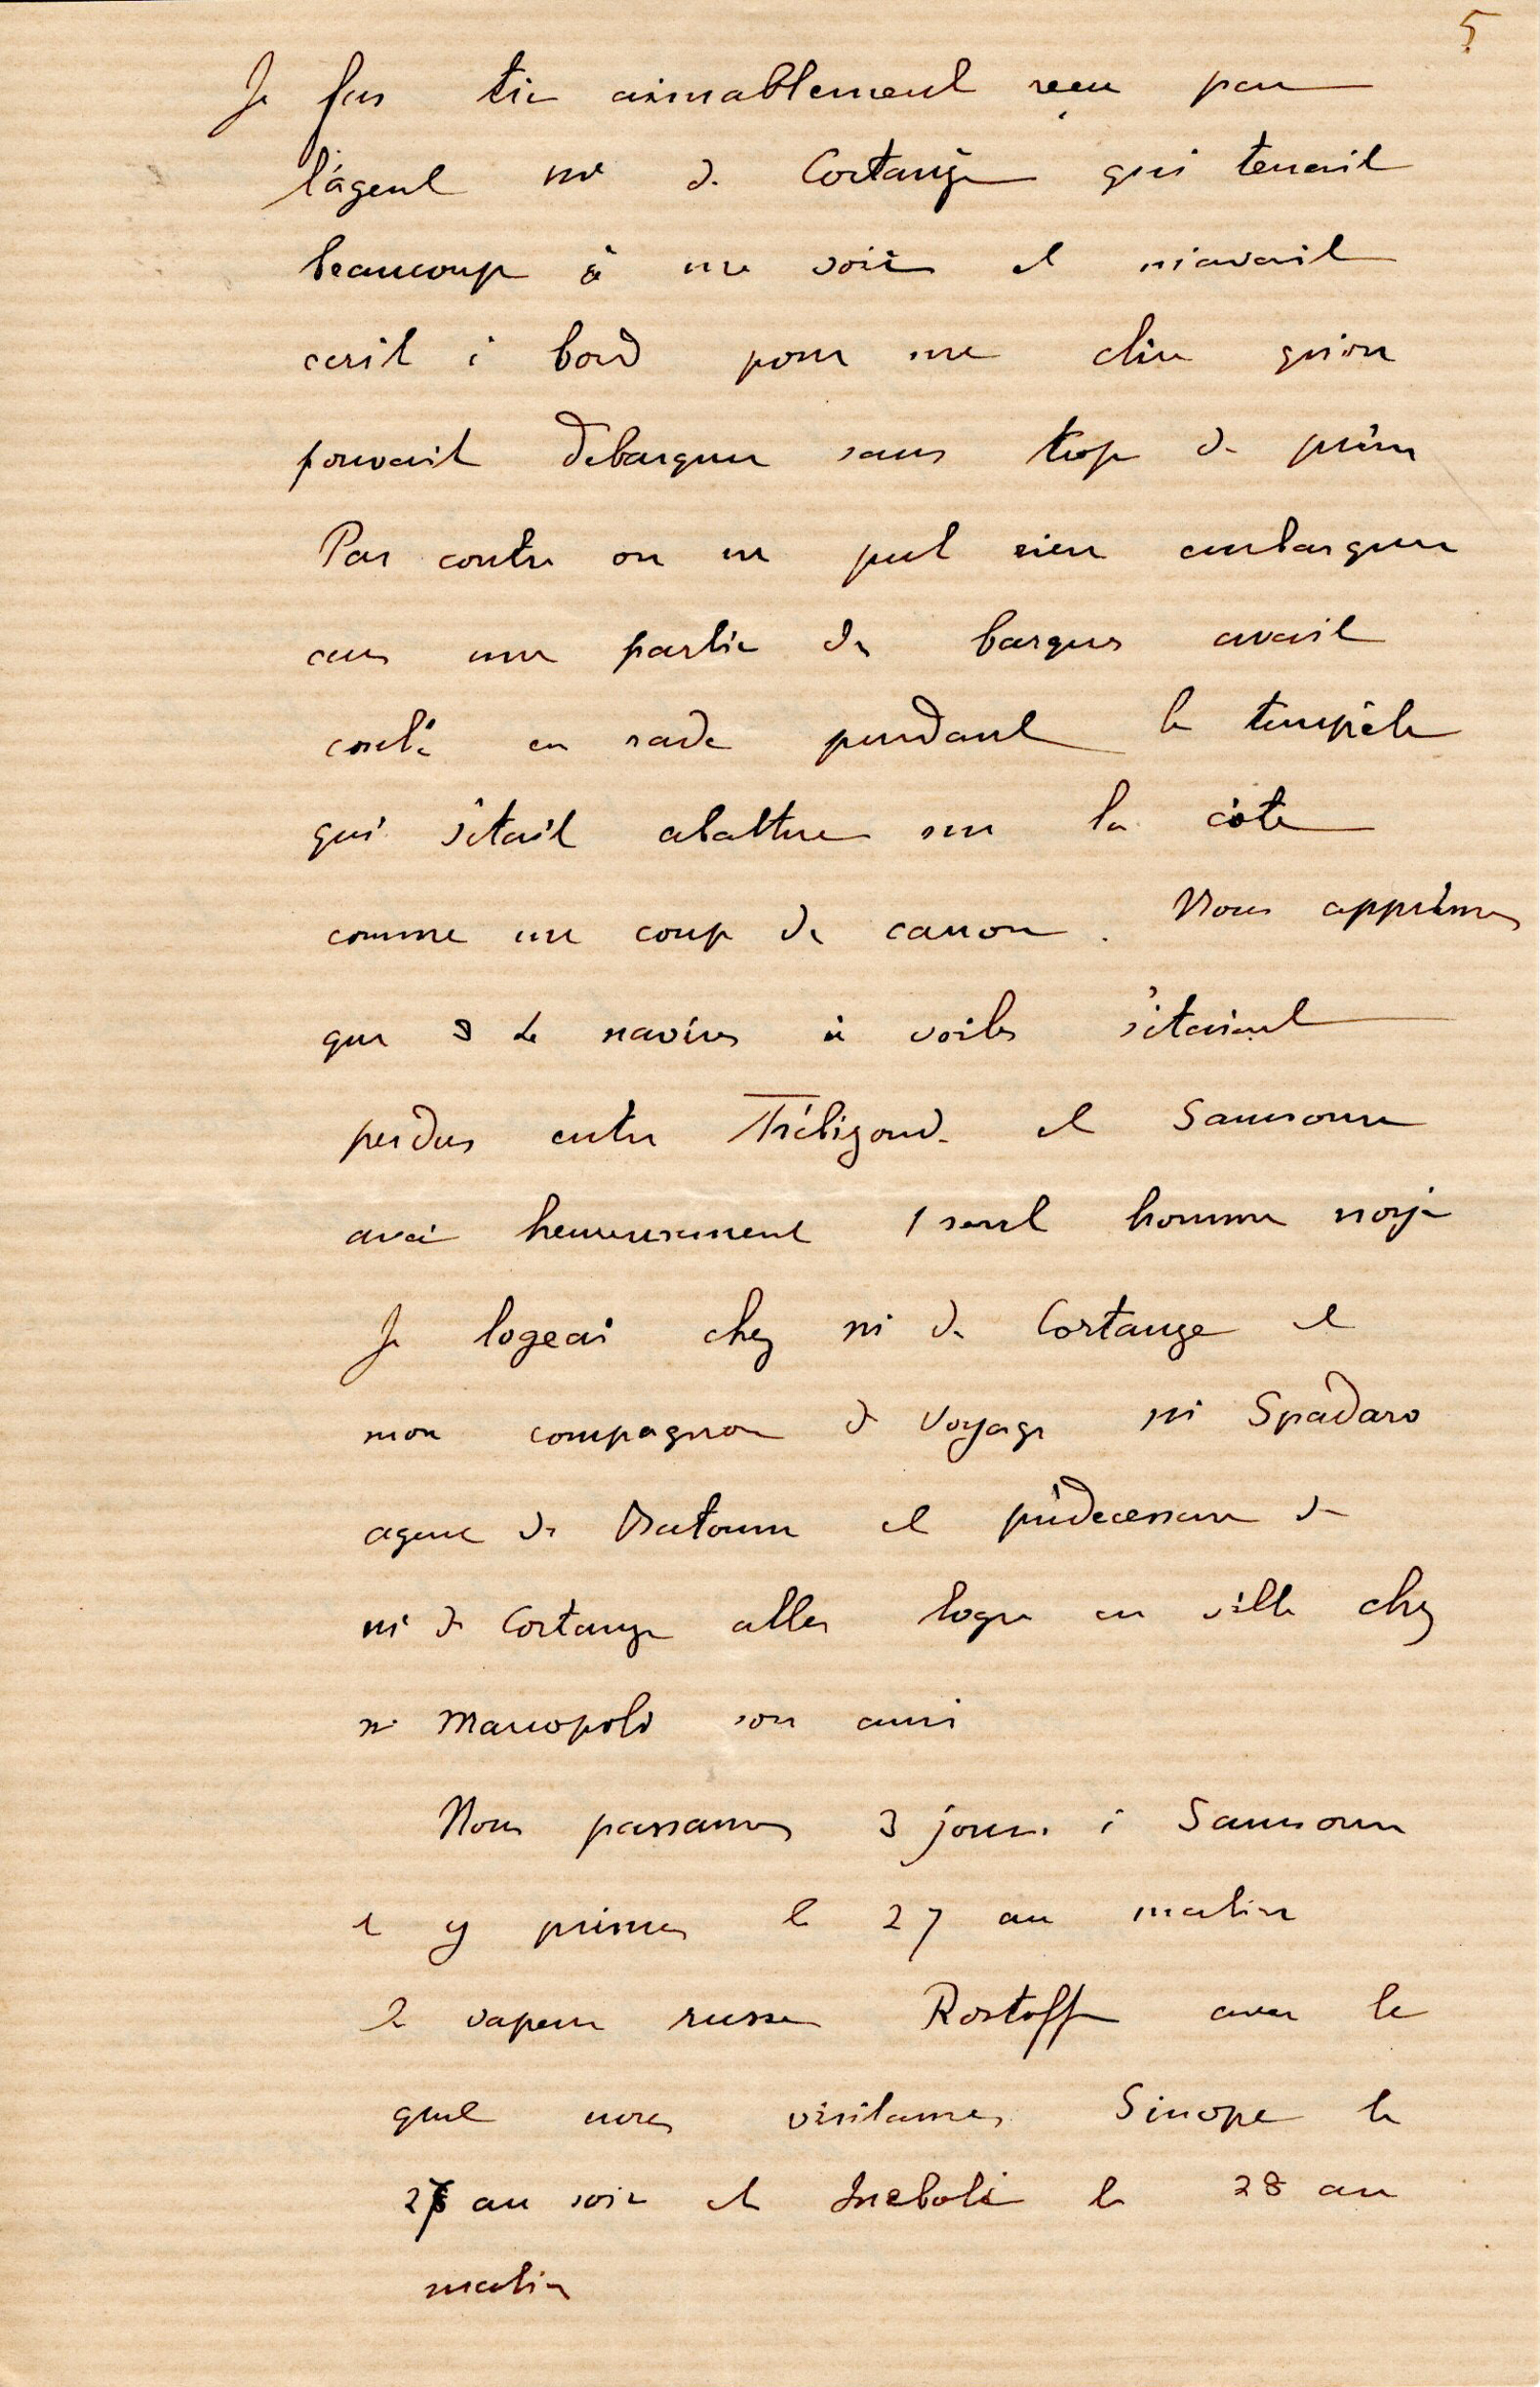 5
Je fus très aimablement reçu par
l'agent mr de Cortange qui tenait
beaucoup à me voir et m'avait
écrit à bord pour me dire qu'on
pouvait débarquer sans trop de peine
Par contre on ne put rien embarquer
car une partie des barques avait
coulé en rade pendant la tempête
qui s'était abattue sur la côte
comme un coup de canon. Nous apprîmes
que 3 navires à voiles s'étaient
perdus entre Trébizonde et Samsoun
avec heureusement 1 seul homme noyé
Je logeai chez mr de Cortange et
mon compagnon de voyage mr Spadaro
agent de Batoum et prédécesseur de
mr de Cortange alla loger en ville chez
mr Marcopoli son ami
Nous passames 3 jours à Samsoun
et y primes le 27 au matin
le vapeur russe Rostoff avec le
quel nous visitames Sinope le
27 au soir et Ineboli le 28 au
matin